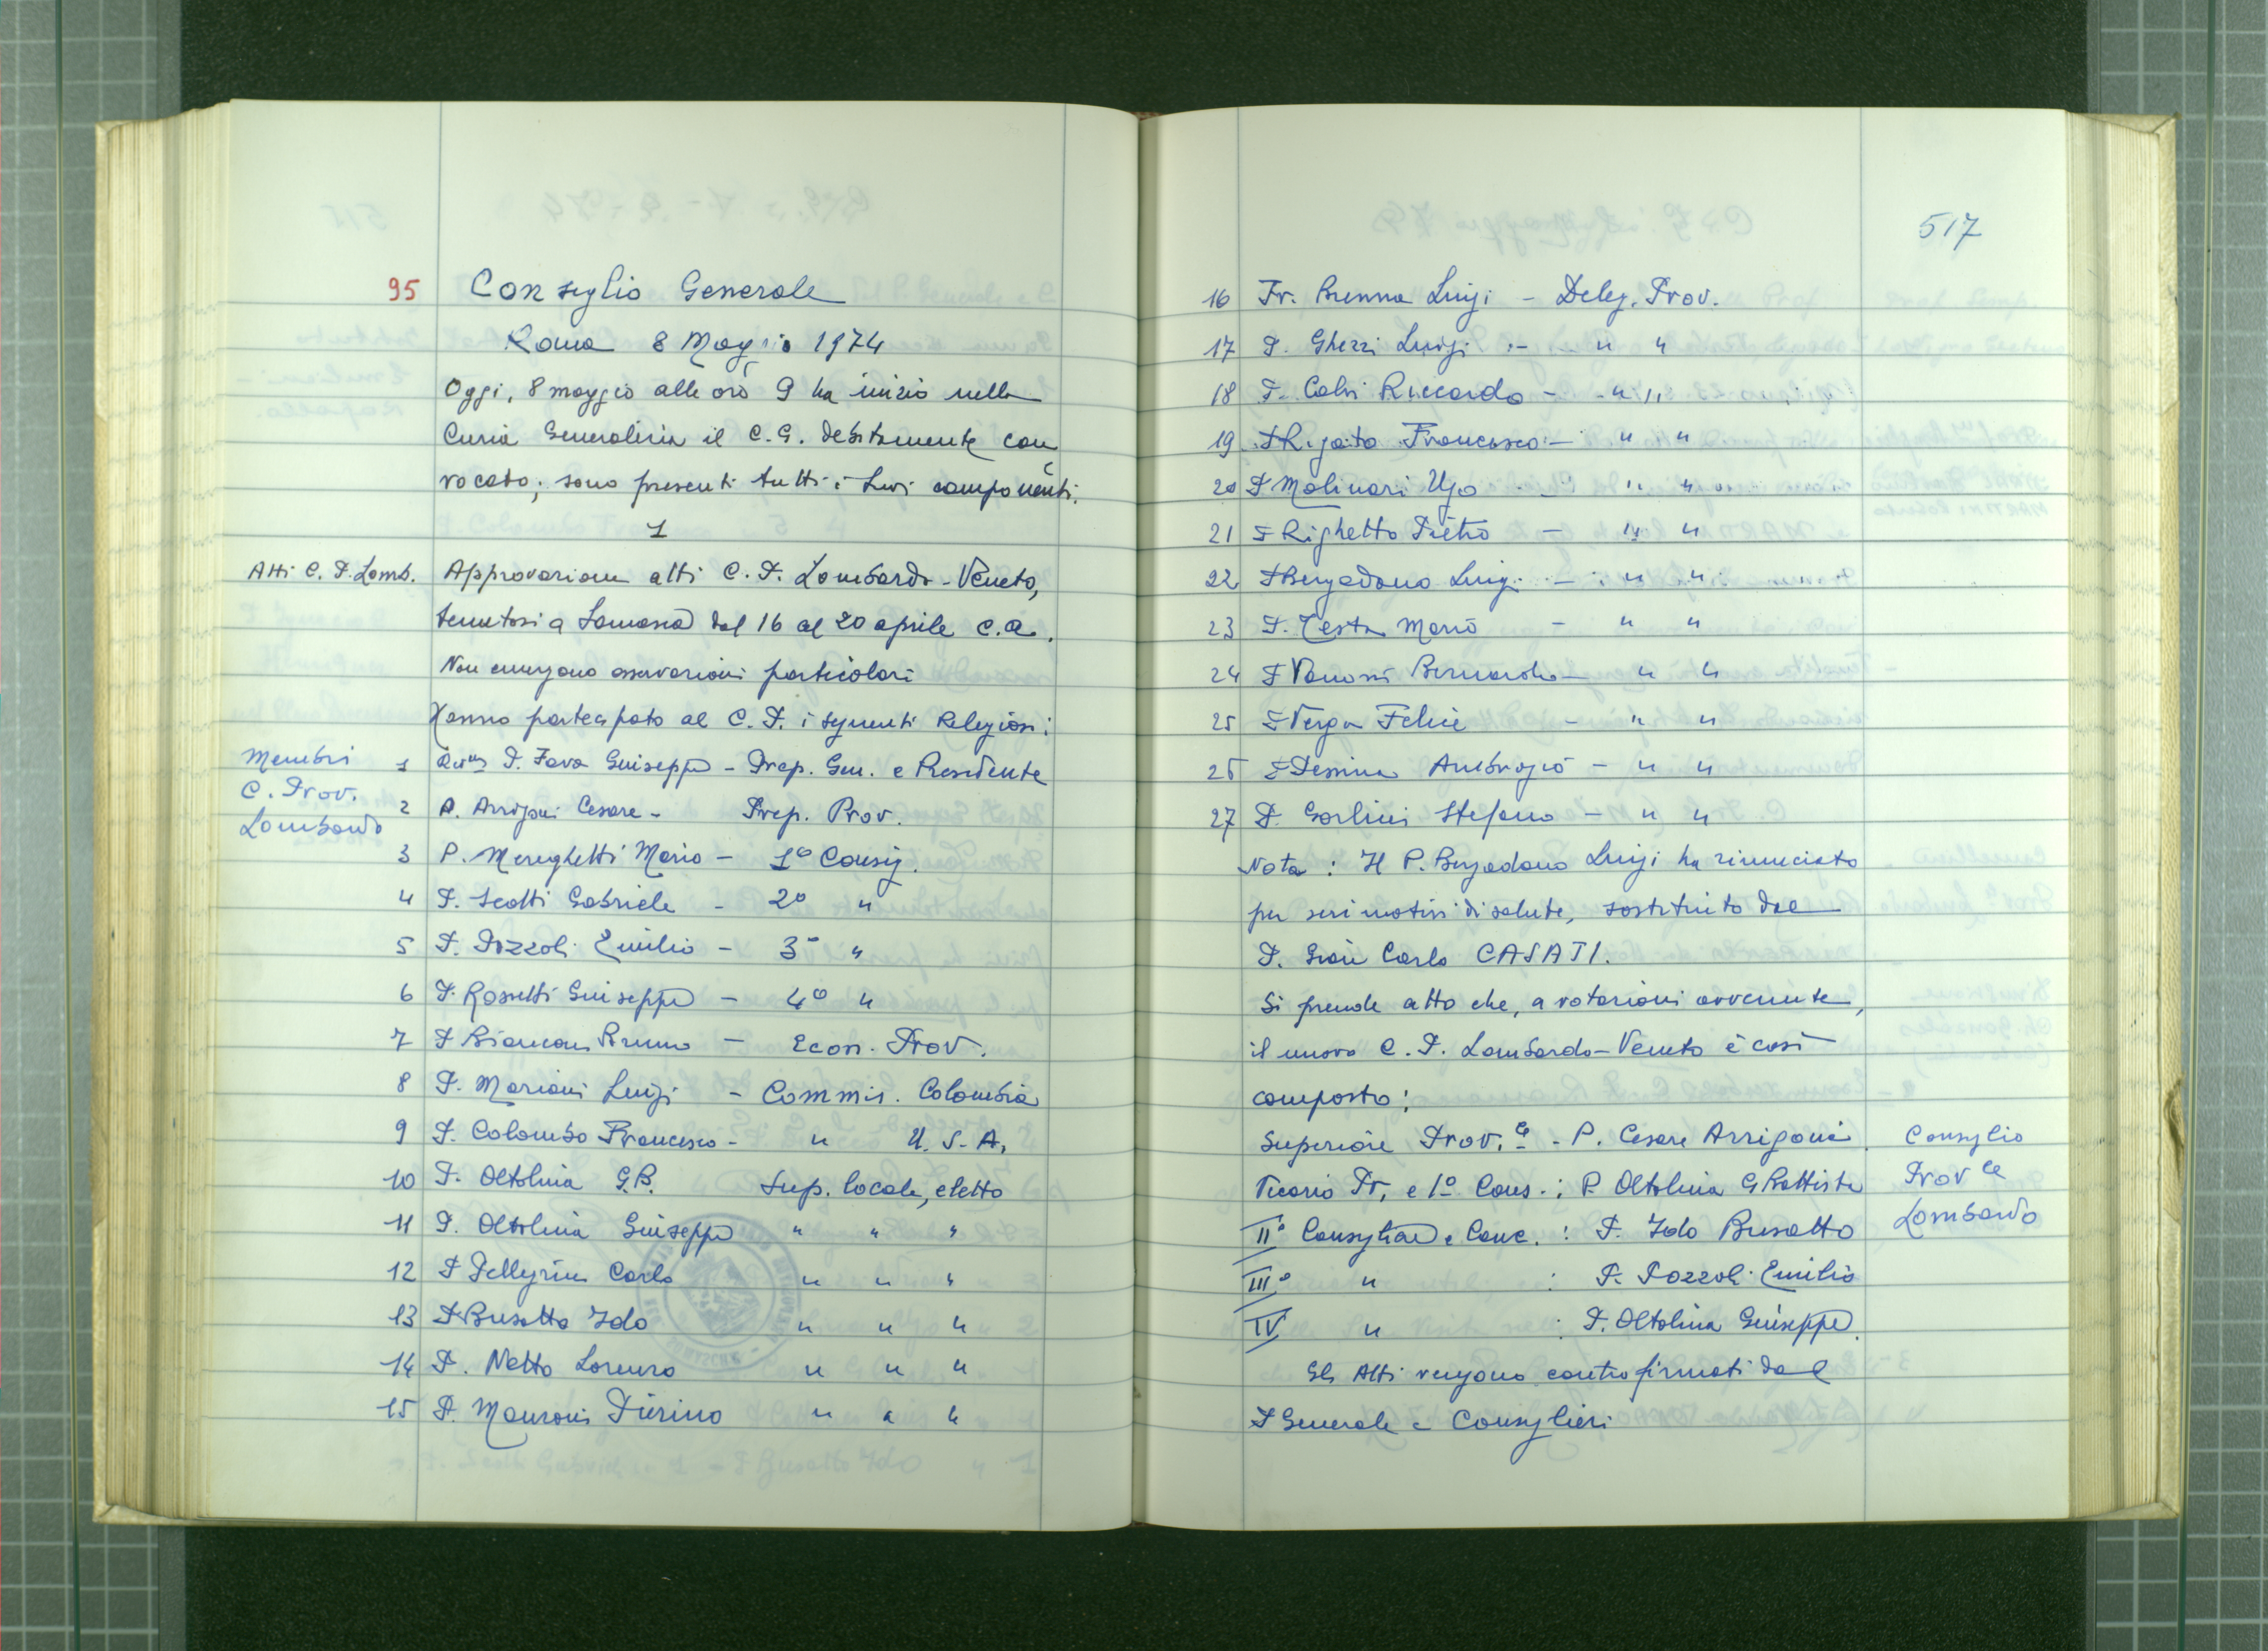 95 Consiglio Generale
Roma 8 Maggio 1974
Oggi, 8 maggio alle ore 9 ha inizio nella
Curia Generalizia il C.G. debitamente con
vocato; sono presenti tutti i suoi componenti.
1
Atti C. P. Lomb. Approvazione atti C. P. Lombardo-Veneto,
tenutosi a Somasca dal 16 al 20 aprile c.a.
Non emergono osservazioni particolari
Hanno partecipato al C. P. i seguenti Religiosi:
Membri
C. Prov.
Lombardo
1 P. Fava Giuseppe - Prep. Gen. e Presidente
2 P. Arrigoni Cesare - Prep. Prov.
3 P. Mereghetti Mario - 1º Consig.
4 P. Scotti Gabriele - 2º "
5 P. Pozzoli Emilio - 3º "
6 P. Rossetti Giuseppe - 4º "
7 P Bianconi Bruno - Econ. Prov.
8 P. Mariani Luigi - Commis. Colombia
9 P. Colombo Francesco - " U. S. A.
10 P. Oltolina G.B. Sup. locale, eletto
11 P. Oltolina Giuseppe " " "
12 P Pellegrini Carlo " " "
13 P Busatto Ido " " "
14 P. Netto Lorenzo " " "
15 P. Manzoni Pierino " " "
517
16 Fr. Brenna Luigi - Deleg. Prov.
17 P. Ghezzi Luigi - " "
18 P. Calvi Riccardo - " "
19 P Rigato Francesco - " "
20 P Molinari Ugo - " "
21 P Righetto Pietro - " "
22 P Bergadano Luigi - " "
23 P. Testa Mario - " "
24 P Vanossi Bernardo - " "
25 P Verga Felice - " "
26 P Pessina Ambrogio - " "
27 P. Gorlini Stefano - " "
Nota: Il P. Bergadano Luigi ha rinunciato
per seri motivi di salute, sostituito dal
P. Gian Carlo CASATI.
Si prende atto che, a votazioni avvenute,
il nuovo C. P. Lombardo-Veneto è così
composto:
Superiore Prov.le - P. Cesare Arrigoni.
Vicario Pr. e 1º Cons.: P. Oltolina G Battista
IIº Consigliere e Canc.: P. Ido Busatto
IIIº " : P. Pozzoli Emilio
IV " : P. Oltolina Giuseppe.
Consiglio
Prov le
Lombardo
Gli Atti vengono controfirmati dal
P Generale e Consiglieri